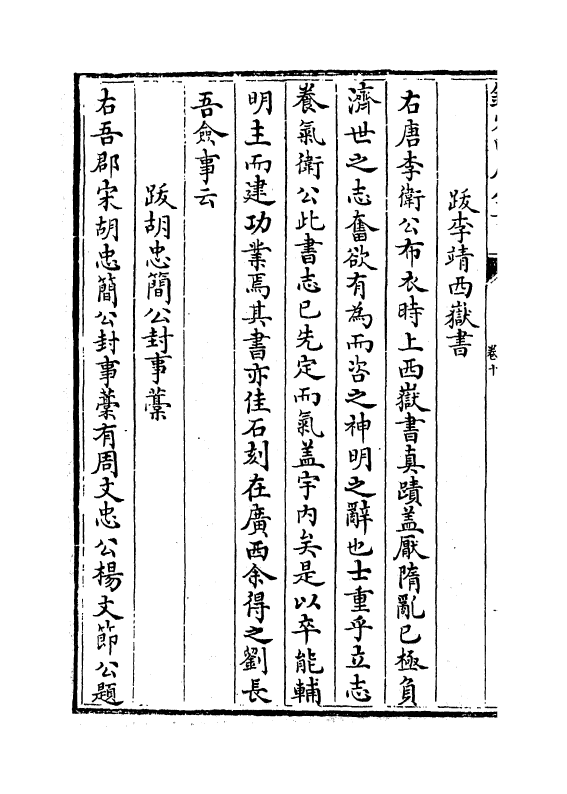 跋李靖西嶽書
右唐李衛公布衣時上西嶽書真蹟盖厭隋亂已極負
濟世之志奮欲有為而咨之神明之辭也士重乎立志
養氣衛公此書志已先定而氣盖宇内矣是以卒能輔
明主而建功業焉其書亦佳石刻在廣西余得之劉長
吾僉事云
跋胡忠簡公封事藁
右吾郡宋胡忠簡公封事藁有周文忠公楊文節公題